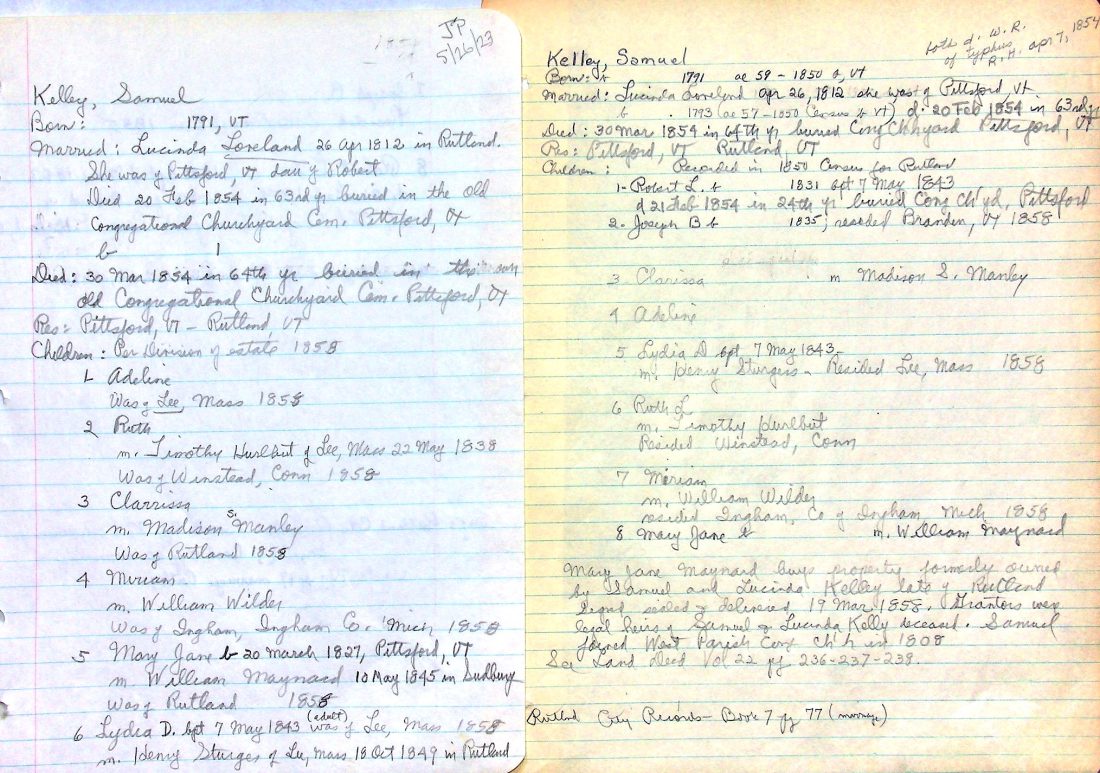 JP
5/26/23
Kelley, Samuel
Born: 1791, VT
Married: Lucinda Loveland 26 Apr 1812 in Rutland.
She was of Pittsford, VT dau of Robert
Died 20 Feb 1854 in 63rd yr buried in the old
Congregational Churchyard Cem. Pittsford, Vt
b 1
Died: 30 Mar 1854 in 64th yr buried in the
old Congregational Churchyard Cem. Pittsford, VT
Res: Pittsford, VT - Rutland, VT
Children: Per Division of estate 1858
1 Adeline
Was of Lee, Mass 1858
2 Ruth
m. Timothy Hurlbut of Lee, Mass 22 May 1838
Was of Winstead, Conn 1858
3 Clarrissa
m. Madison S. Manley
Was of Rutland 1858
4 Miriam
m. William Wilder
Was of Ingham, Ingham Co. Mich 1858
5 Mary Jane b 20 March 1827, Pittsford, VT
m William Maynard 10 May 1845 in Sudbury
was of Rutland 1858
6 Lydia D. bpt 7 May 1843 (adult) was of Lee, Mass 1858
m. Henry Sturges of Lee, Mass 18 Oct 1849 in Rutland
both d. W.R.
of typhus
R.H. Apr 7, 1854
Kelley, Samuel
Born: b 1791 ae 59 - 1850 VT
Married: Lucinda Loveland Apr 26, 1812 she was of Pittsford, Vt.
b 1793 (ae 57 - 1850 Census b VT) d. 20 Feb 1854 in 63rd yr
Died: 30 Mar 1854 in 64th yr buried Cong Ch'hyard Pittsford, VT
Res: Pittsford, VT Rutland, VT
Children: Recorded in 1850 Census for Rutland
1- Robert L. b 1831 bpt 7 May 1843
d 21 Feb 1854 in 24th yr buried Cong Ch'yd, Pittsford
2. Joseph B b 1835, resided Brandon, VT 1858
3 Clarissa m Madison S. Manley
4 Adeline
5 Lydia D bpt 7 May 1843
m. Henry Sturgess - Resided Lee, Mass 1858
6 Ruth L
m. Timothy Hurlbut
Resided Winstead, Conn
7 Miriam
m. William Wilder
resided Ingham, Co of Ingham Mich 1858
8 Mary Jane b m. William Maynard
Mary Jane Maynard buys property formerly owned
by Samuel and Lucinda Kelley late of Rutland
Signed sealed & delivered 19 Mar 1858. Grantors were
legal heirs of Samuel & Lucinda Kelly deceased. Samuel
joined West Parish Cong Ch'h in 1808
See Land Deed Vol 22 pg 236-237-238.
Rutland City Records - Book 7 pg 77 (marriage)